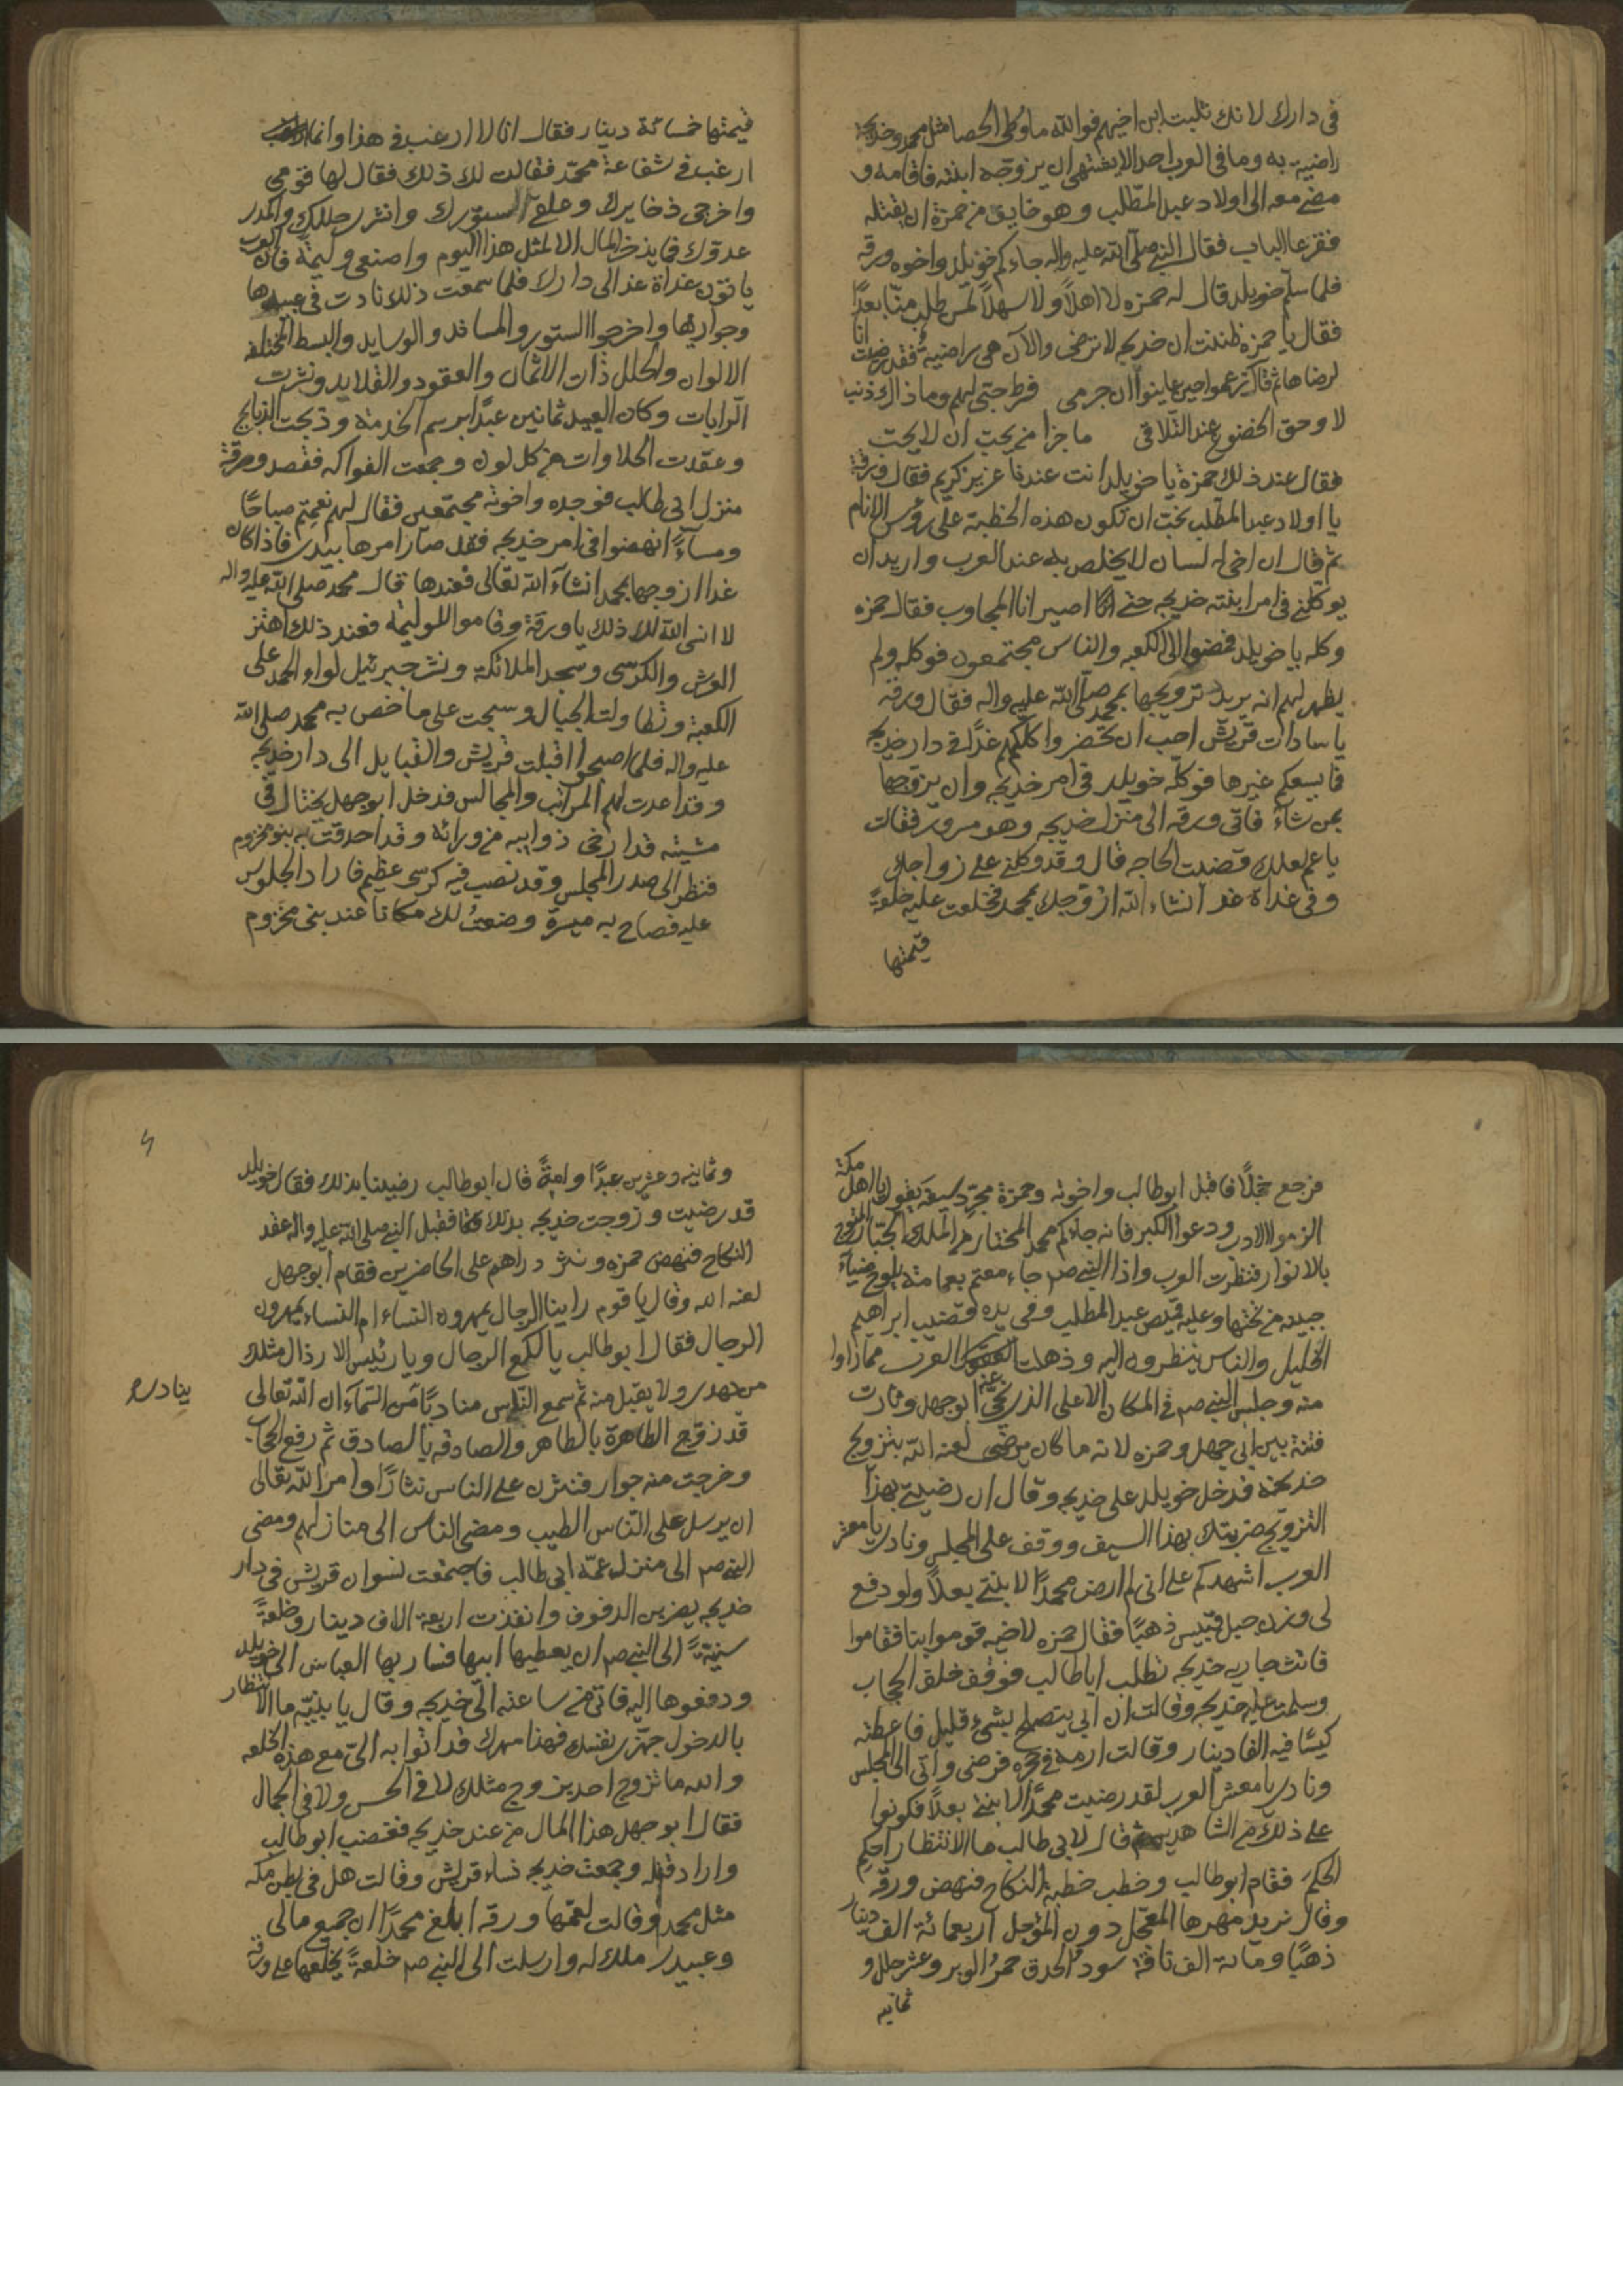 في دارك لانك ثلبت ابن اخيهم فوالله ما وطئ الحصا مثل محمد وخديجة
راضية به وما في العرب احد الا يشتهي ان يزوجه ابنته فاقامه و
مضى معه الى اولاد عبد المطلب وهو خايف من حمزة ان يقتله
فقرعا الباب فقال النبي صلى الله عليه واله جاءكم خويلد واخوه ورقه
فلما سلم خويلد قال له حمزه لا اهلاً ولا سهلاً لمن طلب منا بعداً
فقال يا حمزه ظننت ان خديجه لا ترضى والآن هي راضية فقد رضيت انا
لرضاها ثم قال زعموا حين عاينوا ان جرمي فرط حبي لهم وما ذاك ذنب
لا وحق الخضوع عند التلاقي ما جزا من يحب ان لا يحب
فقال عند ذلك حمزة يا خويلد انت عندنا عزيز كريم فقال ورقة
يا اولاد عبد المطلب نحب ان تكون هذه الخطبة على روس الانام
ثم قال ان اخي له لسان لا يخلص به عند العرب واريد ان
يوكلني في امر ابنته خديجه حتى اصير انا المجاوب فقال حمزه
وكله يا خويلد فمضوا الى الكعبه والناس مجتمعون فوكله ولم
يظهر لهم انه يريد تزويجها بمحمد صلى الله عليه واله فقال ورقه
يا سادات قريش احب ان تحضروا كلكم غداً في دار خديجه
فما يسعكم غيرها فوكله خويلد في امر خديجه وان يزوجها
بمن شاء فاتى ورقه الى منزل خديجه وهو مسرور فقالت
يا عم لعلك قضيت الحاجه قال وقد وكلني على زواجك
وفي غداة غد انشاء الله ازوجك بمحمد فخلعت عليه خلعةً
قيمتها
قيمتها خمسمائة دينار فقال انا لا ارغب في هذا وانما
ارغب في شفاعة محمد فقالت لك ذلك فقال لها قومي
واخرجي ذخايرك وعلقي الستورك وانثري حللك واكدر
عدوك فما يذخر المال الا لمثل هذا اليوم واصنعي وليمة فان العرب
ياتون غداة غد الى دارك فلما سمعت ذلك نادت في عبيدها
وجواريها واخرجوا الستور والمساند والوسايد والبسط المختلفه
الالوان والحلل ذات الاثمان والعقود والقلايد ونشرت
الرايات وكان العبيد ثمانين عبداً برسم الخدمة وذبحت الذبايح
وعقدت الحلاوات من كل لون وجمعت الفواكه فقصد ورقة
منزل ابي طالب فوجده واخوته مجتمعين فقال لهم نعمتم صباحاً
ومساءً انهضوا في امر خديجه فقد صار امرها بيدي فاذا كان
غدا ازوجها بمحمد انشاء الله تعالى فعندها قال محمد صلى الله عليه واله
لا انسى الله لك ذلك يا ورقة وقاموا للوليمة فعند ذلك اهتز
العرش والكرسي وسجد الملائكة ونشر جبرئيل لواء الحمد على
الكعبة وتطاولت الجبال وسبحت على ما خص به محمد صلى الله
عليه واله فلما اصبحوا اقبلت قريش والقبايل الى دار خديجه
وقد اعدت لهم المراتب والمجالس فدخل ابوجهل يختال في
مشيته قد ارخى ذوايبه من ورائه وقد احدقت به بنو مخزوم
فنظر الى صدر المجلس وقد نصب فيه كرسي عظيم فاراد الجلوس
عليه فصاح به ميسرة وضعتُ لك مكانا عند بني مخزوم
فرجع خجلاً فاقبل ابوطالب واخوته وحمزة مجرد سيفه يقول يا اهل مكة
الزموا الادب ودعوا الكبر فانه جاءكم محمد المختار من الملك الجبار المتوج
بالانوار فنظرت العرب واذا النبي صم جاء معتم بعمامة يلوح ضياء
جبينه من تحتها وعليه قميص عبد المطلب وفي يده قضيب ابراهيم
الخليل والناس ينظرون اليه وذهلت العرب مما راوا
منه وجلس النبي صم في المكان الاعلى الذي نحي عنه ابوجهل وثارت
فتنة بين ابي جهل وحمزه لانه ما كان يرضى لعنه الله بتزويج
خديجة فدخل خويلد على خديجه وقال ان رضيتي بهذا
التزويج ضربتك بهذا السيف ووقف على المجلس ونادى يا معشر
العرب اشهدكم على اني لم ارض محمداً لابنتي بعلاً ولو دفع
لي وزن جبل قبيس ذهباً فقال حمزه لاخيه قوموا بنا فقاموا
فاتت جاريه خديجه تطلب ابا طالب فوقف خلف الحجاب
وسلمت عليه خديجه وقالت ان ابي يتصلح بشيء قليل فاعطته
كيسًا فيه الفا دينار وقالت ارمه في حجره فرضي واتى الى المجلس
ونادى يا معشر العرب لقد رضيت محمداً لابنتي بعلاً فكونوا
على ذلك من الشاهدين ثم قال لابي طالب ما الانتظار احكم
الحكم فقام ابوطالب وخطب خطبة النكاح فنهض ورقة
وقال نريد مهرها المعجل دون المؤجل اربعمائة الف دينار
ذهبًا ومائة الف ناقة سود الحدق حمر الوبر وعشر حلل و
ثمانيه
وثمانيه وعشرين عبدًا وامةً قال ابوطالب رضينا بذلك فقال خويلد
قد رضيت وزوجت خديجه بذلك فقبل النبي صلى الله عليه واله عقد
النكاح فنهض حمزه ونثر دراهم على الحاضرين فقام ابوجهل
لعنه الله وقال يا قوم راينا الرجال يمهرون النساء ام النساء يمهرون
الرجال فقال ابوطالب يا لكع الرجال ويا رئيس الارذال مثلك
من يهدى ولا يقبل منه ثم سمع الناس مناديًا من السماء ان الله تعالى
ينادي
قد زوج الطاهرة بالطاهر والصادقه بالصادق ثم رفع الحجاب
وخرجت منه جوار فنثرن على الناس نثارًا وامر الله تعالى
ان يرسل على الناس الطيب ومضى الناس الى منازلهم ومضى
النبي صم الى منزل عمه ابي طالب فاجتمعت نسوان قريش في دار
خديجه يضربن الدفوف وانفذت اربعة الاف دينار وخلعةً
سنيةً الى النبي صم ان يعطيها ابيها فسار بها العباس الى خويلد
ودفعوها اليه فاتى من ساعته الى خديجه وقال يا بنيه ما الانتظار
بالدخول جهزي نفسك فهذا مهرك قد اتوا به الي مع هذه الخلعه
والله ما تزوج احد بزوج مثلك لا في الحسن ولا في الجمال
فقال ابوجهل هذا المال من عند خديجه فغضب ابوطالب
واراد قتله وجمعت خديجه نساء قريش وقالت هل في بطن مكه
مثل محمد وقالت لعمها ورقه ابلغ محمدًا ان جميع مالي
وعبيدي ملك له وارسلت الى النبي صم خلعةً يخلعها على ورقه